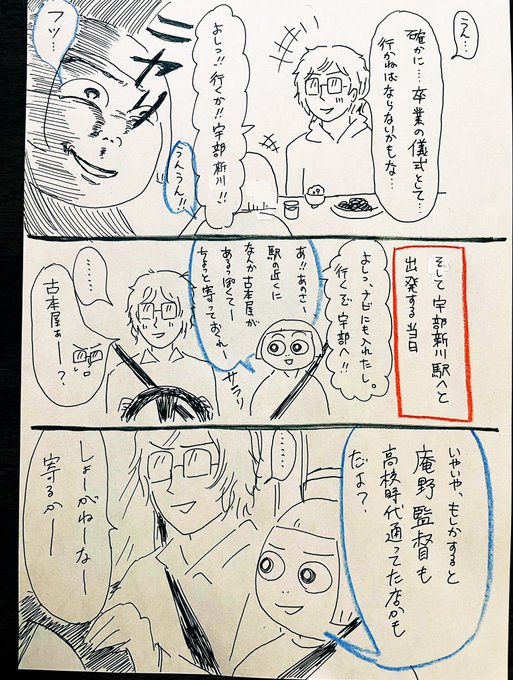 うん…
確かに…卒業の儀式として…
行かねばならないかもな…
よしっ!!行くか!!宇部新川!!
うんうん!!
ニヤリ
フッ…
そして宇部新川駅へと
出発する当日
よしっ、ナビにも入れたし。
行くぞ宇部へ!!
あ!!あのさー
駅の近くに
なんか古本屋が
あるっぽくてー
ちょっと寄っておくれー
サラリ
……
古本屋ぁー?
いやいや、もしかすると
庵野監督も
高校時代通ってたなかも
だよ?
……
しょーがねーなー
寄るかー